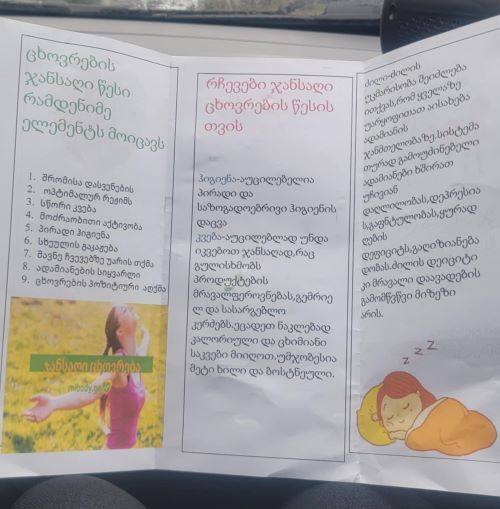 ცხოვრების
ჯანსაღი წესი
რამდენიმე
ელემენტს მოიცავს
1. შრომისა დასვენების
2. ოპტიმალურ რეჟიმს
3. სწორი კვება
4. მოძრაობითი აქტივობა
5. პირადი ჰიგიენა
6. სხეულის გაკაჟება
7. მავნე ჩვევებზე უარის თქმა
8. ადამიანების სიყვარლი
9. ცხოვრების პოზიტიური აღქმა
ჯანსაღი ცხოვრება
mibody.ge
რჩევები ჯანსაღი
ცხოვრების წესის
თვის
ჰიგიენა-აუცილებელია
პირადი და
საზოგადოებრივი ჰიგიენის
დაცვა
კვება-აუცილებლად უნდა
იკვებოთ ჯანსაღად,რაც
გულისხმობს
პროდუქტების
მრავალფეროვნებას,გემრიე
ლ და სასარგებლო
კერძებს.ეცადეთ ნაკლებად
კალორიული და ცხიმიანი
საკვები მიიღოთ.უმჯობესია
მეტი ხილი და ბოსტნეული.
ძილი-ძილის
უკმარისობა შეიძლება
ითქვას,რომ ყველაზე
უარყოფითათ აისახება
ადამიანის
ჯანმთელობაზე.სისტემა
თურად გამოუძინებელი
ადამიანები ხშირათ
უჩივიან
დაღლილობას,დეპრესია
ს,გაფანტულობას,ყურად
ღების
დეფიციტს,გაღიზიანება
დობას.ძილის დეიციტი
კი მრავალი დაავადების
გამომწვევი მიზეზი
არის.
z z z